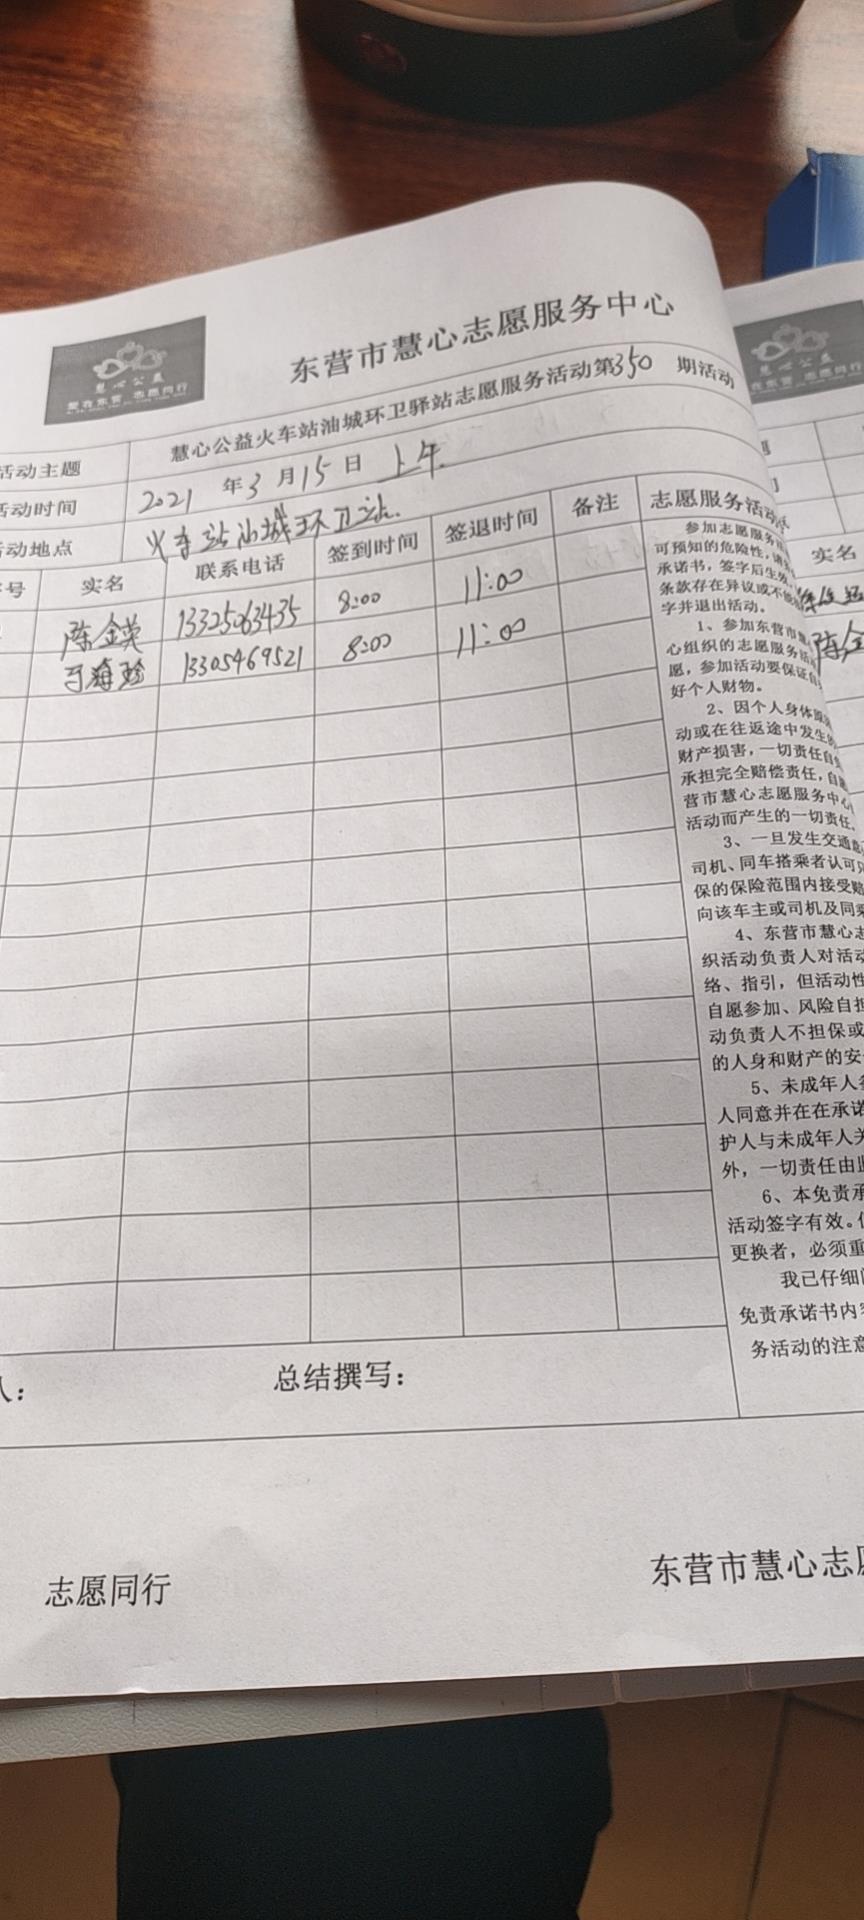 东营市慧心志愿服务中心
慧心公益
爱在东营 志愿同行
活动主题
慧心公益火车站油城环卫驿站志愿服务活动第350 期活动
活动时间
2021 年3月15日 上午
活动地点
火车站油城环卫站
号 实名 联系电话 签到时间 签退时间 备注 志愿服务活动
陈金英 13325063435 8:00 11:00
于海珍 13305469521 8:00 11:00
参加志愿服务
可预知的危险性,请
承诺书,签字后生效
条款存在异议或不能
字并退出活动。
1、参加东营市慧
心组织的志愿服务活
愿,参加活动要保证自
好个人财物。
2、因个人身体原
动或在往返途中发生的
财产损害,一切责任自
承担完全赔偿责任,自愿
营市慧心志愿服务中心
活动而产生的一切责任。
3、一旦发生交通
司机、同车搭乘者认可
保的保险范围内接受赔
向该车主或司机及同乘
4、东营市慧心志
织活动负责人对活动
络、指引,但活动性
自愿参加、风险自担
动负责人不担保或
的人身和财产的安
5、未成年人
人同意并在在承诺
护人与未成年人关
外,一切责任由监
6、本免责承
活动签字有效。
更换者,必须重
我已仔细
免责承诺书内容
务活动的注意
人:
总结撰写:
志愿同行
东营市慧心志愿
慧心公益
爱在东营 志愿同行
实名
陈金